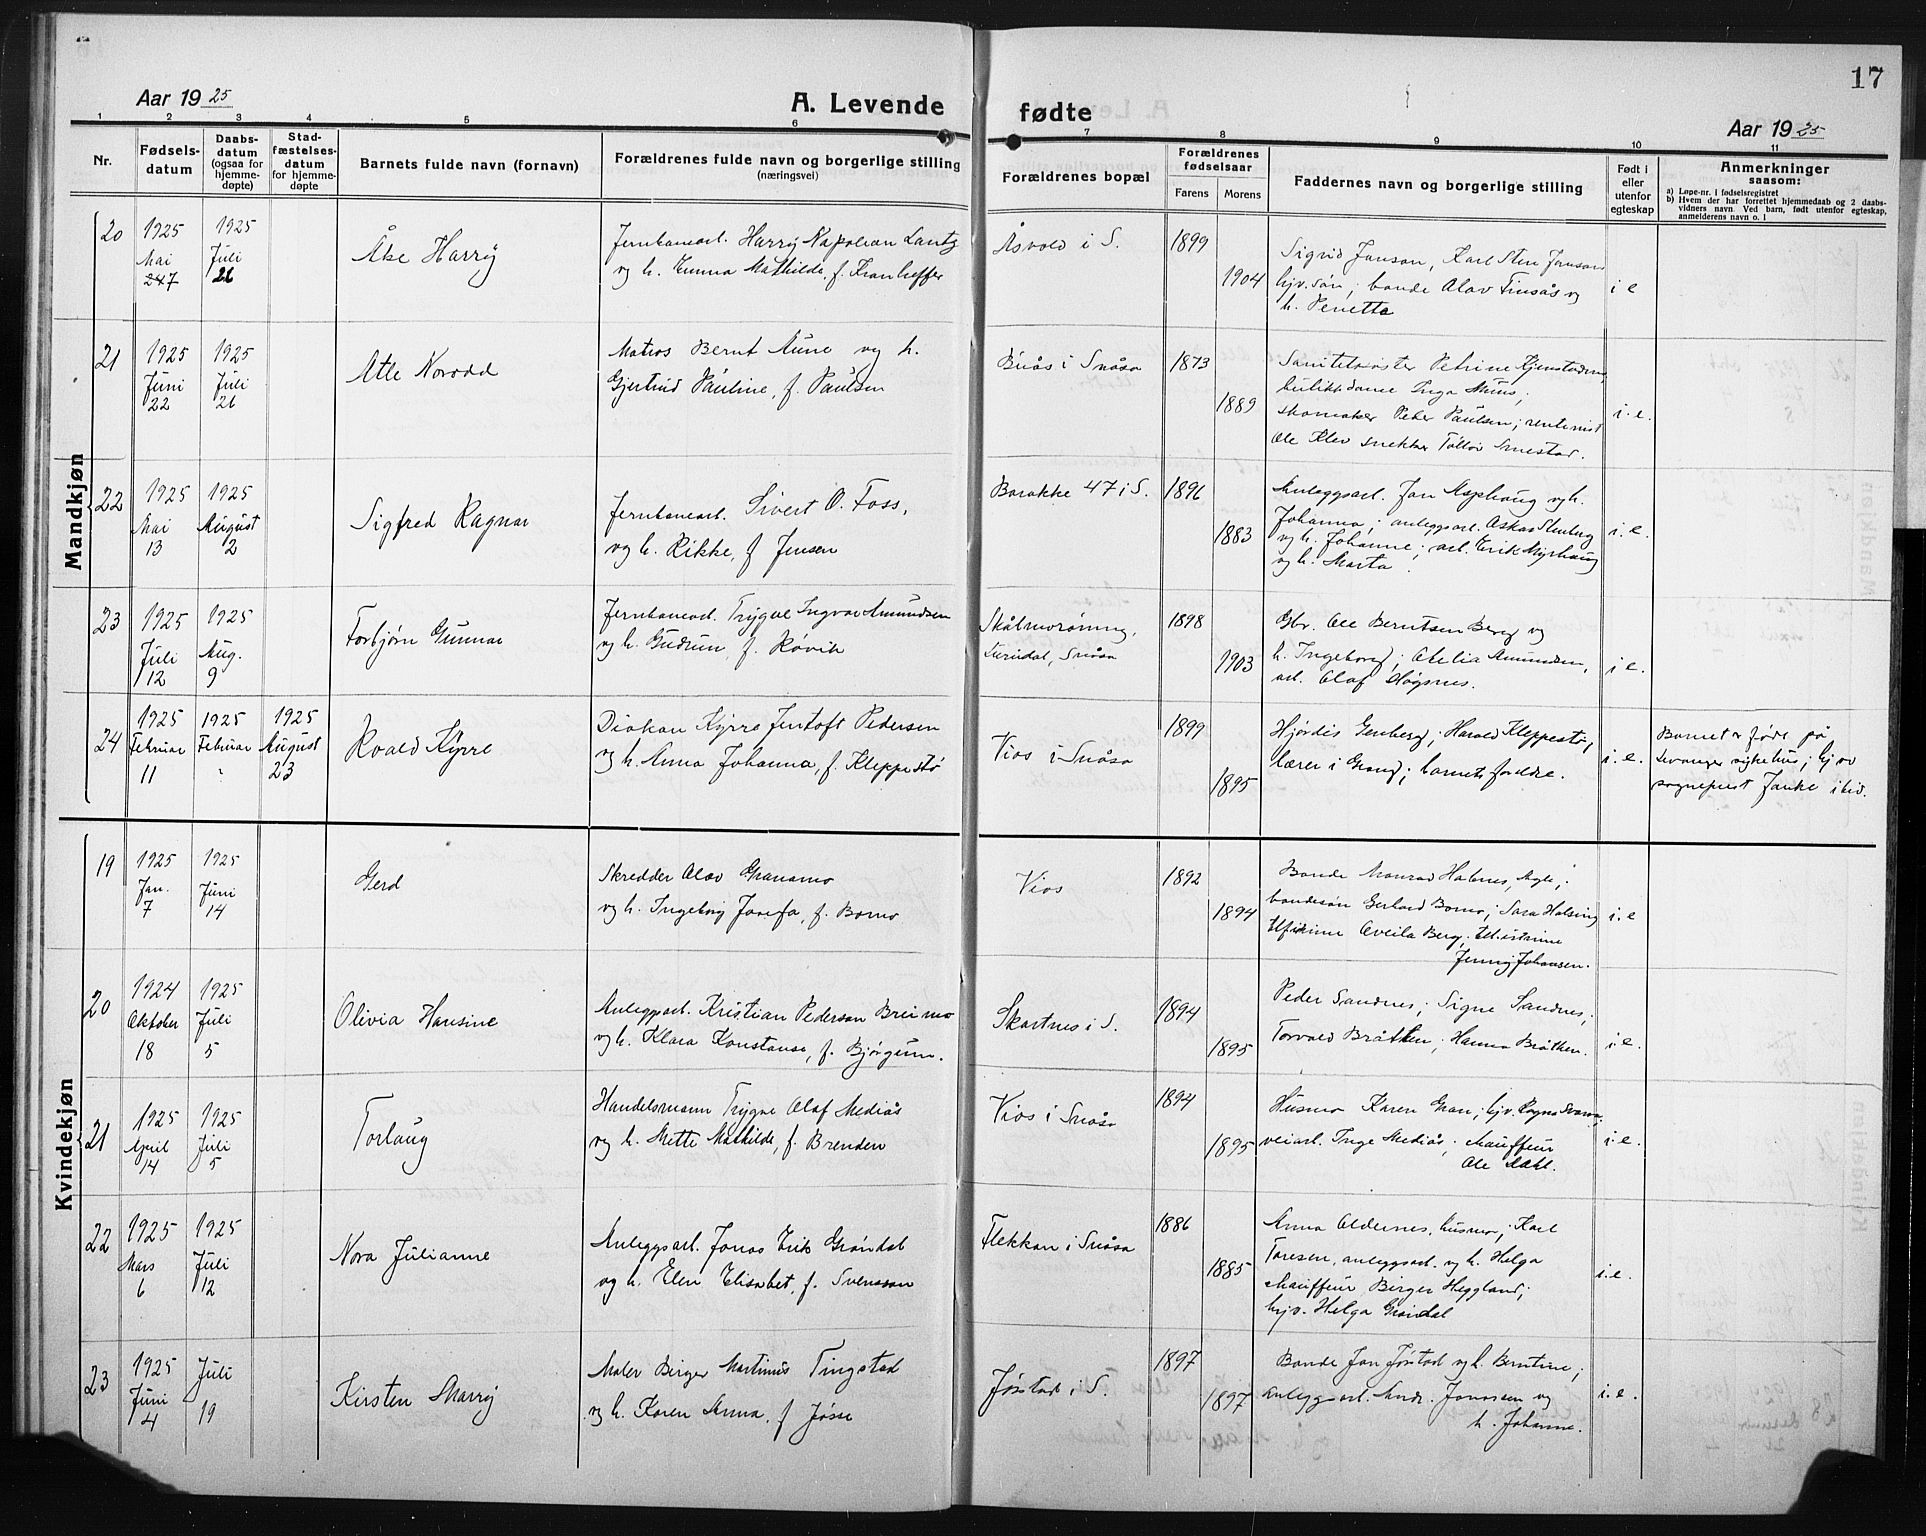 17
Aar 1925
A. Levende fødte
Aar 1925
1 2 3 4 5 6 7 8 9 10 11
Nr.
Fødsels-
datum
Daabs-
datum
(ogsaa for
hjemme-
døpte)
Stad-
fæstelses-
datum
for hjemme-
døpte
Barnets fulde navn (fornavn)
Forældrenes fulde navn og borgerlige stilling
(næringsvei)
Forældrenes bopæl
Forældrenes
fødselsaar
Farens Morens
Faddernes navn og borgerlige stilling
Født i
eller
utenfor
egteskap
Anmerkninger
saasom:
a) Løpe-nr. i fødselsregistret
b) Hvem der har forrettet hjemmedaab og 2 daabs-
vidners navn. Ved barn, født utenfor egteskap,
anmelderens navn o. l
Mandkjøn
20
1925
Mai
1925
Juli
Åke Harry
Jernbanearb. Harry Napolean Lantz
og h. Emma Mathilde, f. Kranheffer
Åsvold i S.
1899
1904
Sigrid Janson, Karl Sten Janson
hjv. søn; bonde Olav Finsås og
h. Penette
i e
21
1925
Juni
22
1925
Juli
26
Atle Norodd
Matros Bernt Aune og h.
Gjertrud Pauline, f. Paulsen
Buås i Snåsa
1873
1889
Sanitetssøster Petrine Kjenstadm,
butikkdame Inga Muus;
skomaker Peter Paulsen; rentenist
Ole Klev snekker Tollov Smestad.
i. e.
22
1925
Mai
13
1925
August
2
Sigfred Ragnar
Jernbanearb. Sivert O. Foss,
og h. Rikke, f. Jensen
Barakke 47 i S.
1896
1883
Anleggsarb. Jon Asphaug og h.
Johanna; anleggsarb. Oskar Stenberg
og h. Johanne; arb. Erik Myrhaug
og h. Marta.
i. e.
23
1925
Juli
12
1925
Aug.
9
Torbjørn Gunnar
Jernbanearb. Trygve Ingvar Amundsen
og h. Gudrun, f. Røvik
Skålmorøning,
Lurudal, Snåsa
1898
1903
Gbr. Ole Berntsen Berg og
h. Ingeborg; Otelia Amundsen,
arb. Olaf Høgsnes.
i e.
24
1925
Februar
11
1925
Februar
1925
August
23
Roald Kyrre
Diakon Kyrre Jentoft Pedersen
og h. Anna Johanna, f. Kleppestø
Vios i Snåsa
1899
1895
Hjørdis Genberg; Harald Kleppestø,
lærer i Grong; barnets foreldre.
i. e.
Barnet er født på
Levanger sykehus; hj. av
sogneprest Janke i liv.
Kvindekjøn
19
1925
Jan.
7
1925
Juni
14
Gerd
Skredder Olav Granamo
og h. Ingeborg Josefa, f. Bomo
Vios
1892
1894
Bonde Monrad Halsnes, Agle;
bondesøn Gerhard Bomo; Sara Halsing
Ufirinne Oveila Berg;
Jenny Johansen.
i. e
20
1924
Oktober
18
1925
Juli
5
Olivia Hansine
Anleggsarb. Kristian Pederson Breimo
og h. Klara Konstanse, f. Bjørgum.
Skartnes i S.
1894
1895
Peder Sandnes; Signe Sandnes;
Torvald Bråtten; Hanna Bråtten.
i. e.
21
1925
April
14
1925
Juli
5
Torlaug
Handelsmann Trygve Olaf Mediås
og h. Mette Mathilde, f. Brenden
Vios i Snåsa
1894
1895
Husmo Karen Gran; hjv. Ragna Svarva,
veiarb. Inge Mediås; chauffeur
Ole Dahl.
i. e.
22
1925
Mars
6
1925
Juli
12
Nora Julianne
Anleggsarb. Jonas Erik Grøndal
og h. Elen Elisabet, f. Svensson
Flekkan i Snåsa
1886
1885
Anna Oldernes, husmo; Karl
Toresen, anleggsarb. og h. Helga
chauffeur Birger Heggland;
hjv. Helga Grøndal
i. e.
23
1925
Juni
4
Juli
19
Kirsten Marry
Maler Birger Martinus Tingstad
og h. Karen Anna, f. Jøsse
Jøstad i S.
1897
1897
Bonde Jon Jøstad og h. Berntine;
anleggsarb. Andr. Jonassen og
h. Johanne.
i. e.